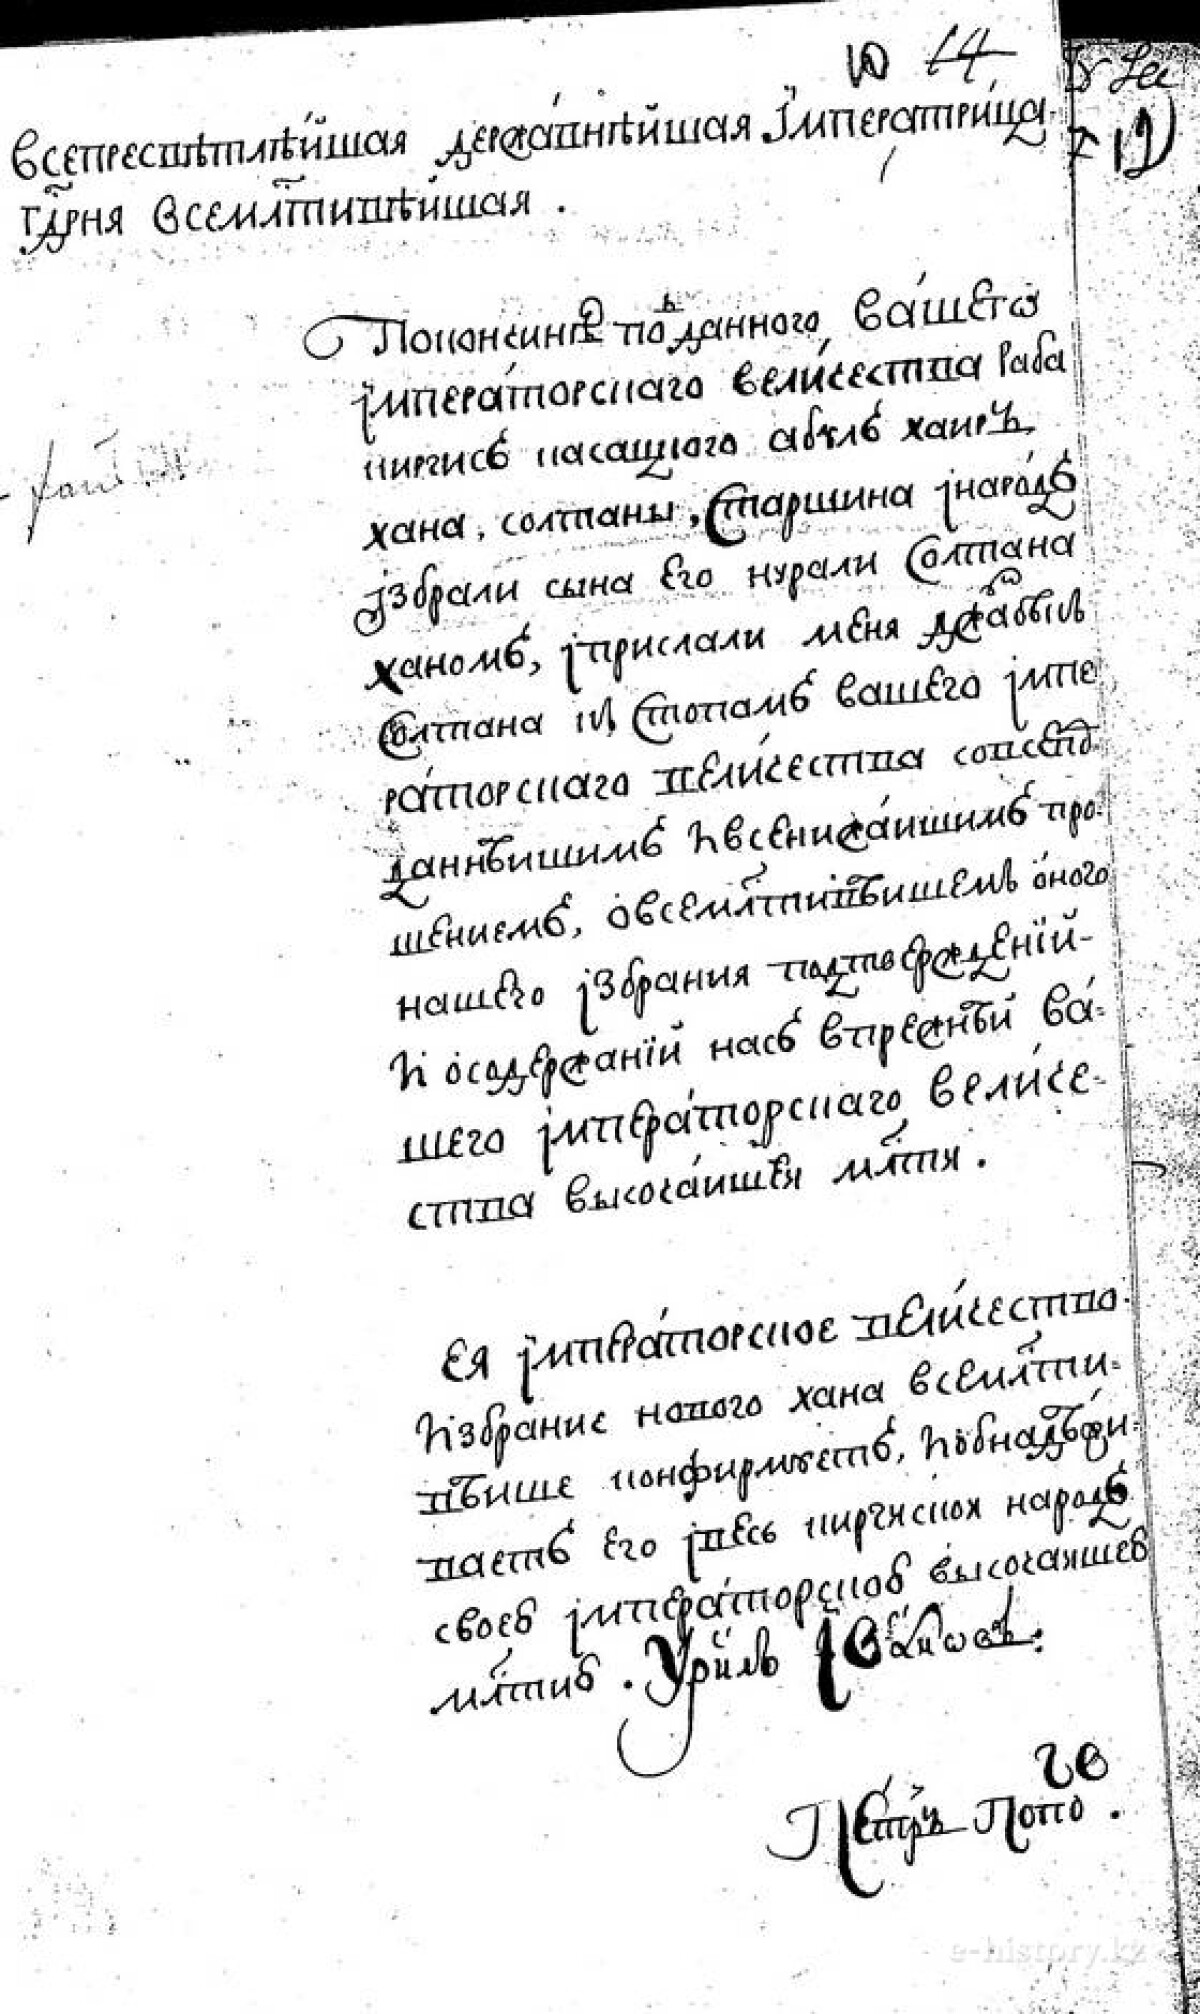 ю 14
всепресвѣтлѣйшая державнѣйшая Імператрица
12)
гдрня всемлтивѣйшая .
По кончинѣ подданного вашего
імператорскаго величества раба
киргисъ касацкого абулъ хаиръ
хана, солтаны, старшина інародъ
ізбрали сына его нурали солтана
ханомъ, іприслали меня джанбыкъ
солтана къ стопамъ вашего импе
раторскаго величества совсепод
даннѣйшимъ и всенижайшимъ про-
шениемъ, овсемлтивѣйшемъ оного
нашего ізбрания подтверждениїй-
И осодержаниїй насъ впрежнѣй ва-
шего імператорскаго величе-
ства высочайшея млти .
Ея імператорское величество
Избрание нового хана всемлти-
вѣише конфирмуетъ, и обнадѣжи-
ваетъ его івесь киргиской народъ
своею імператорскою высочайшею
млтию . Урилъ Івановъ .
Петръ Попо
въ .
e-history.kz